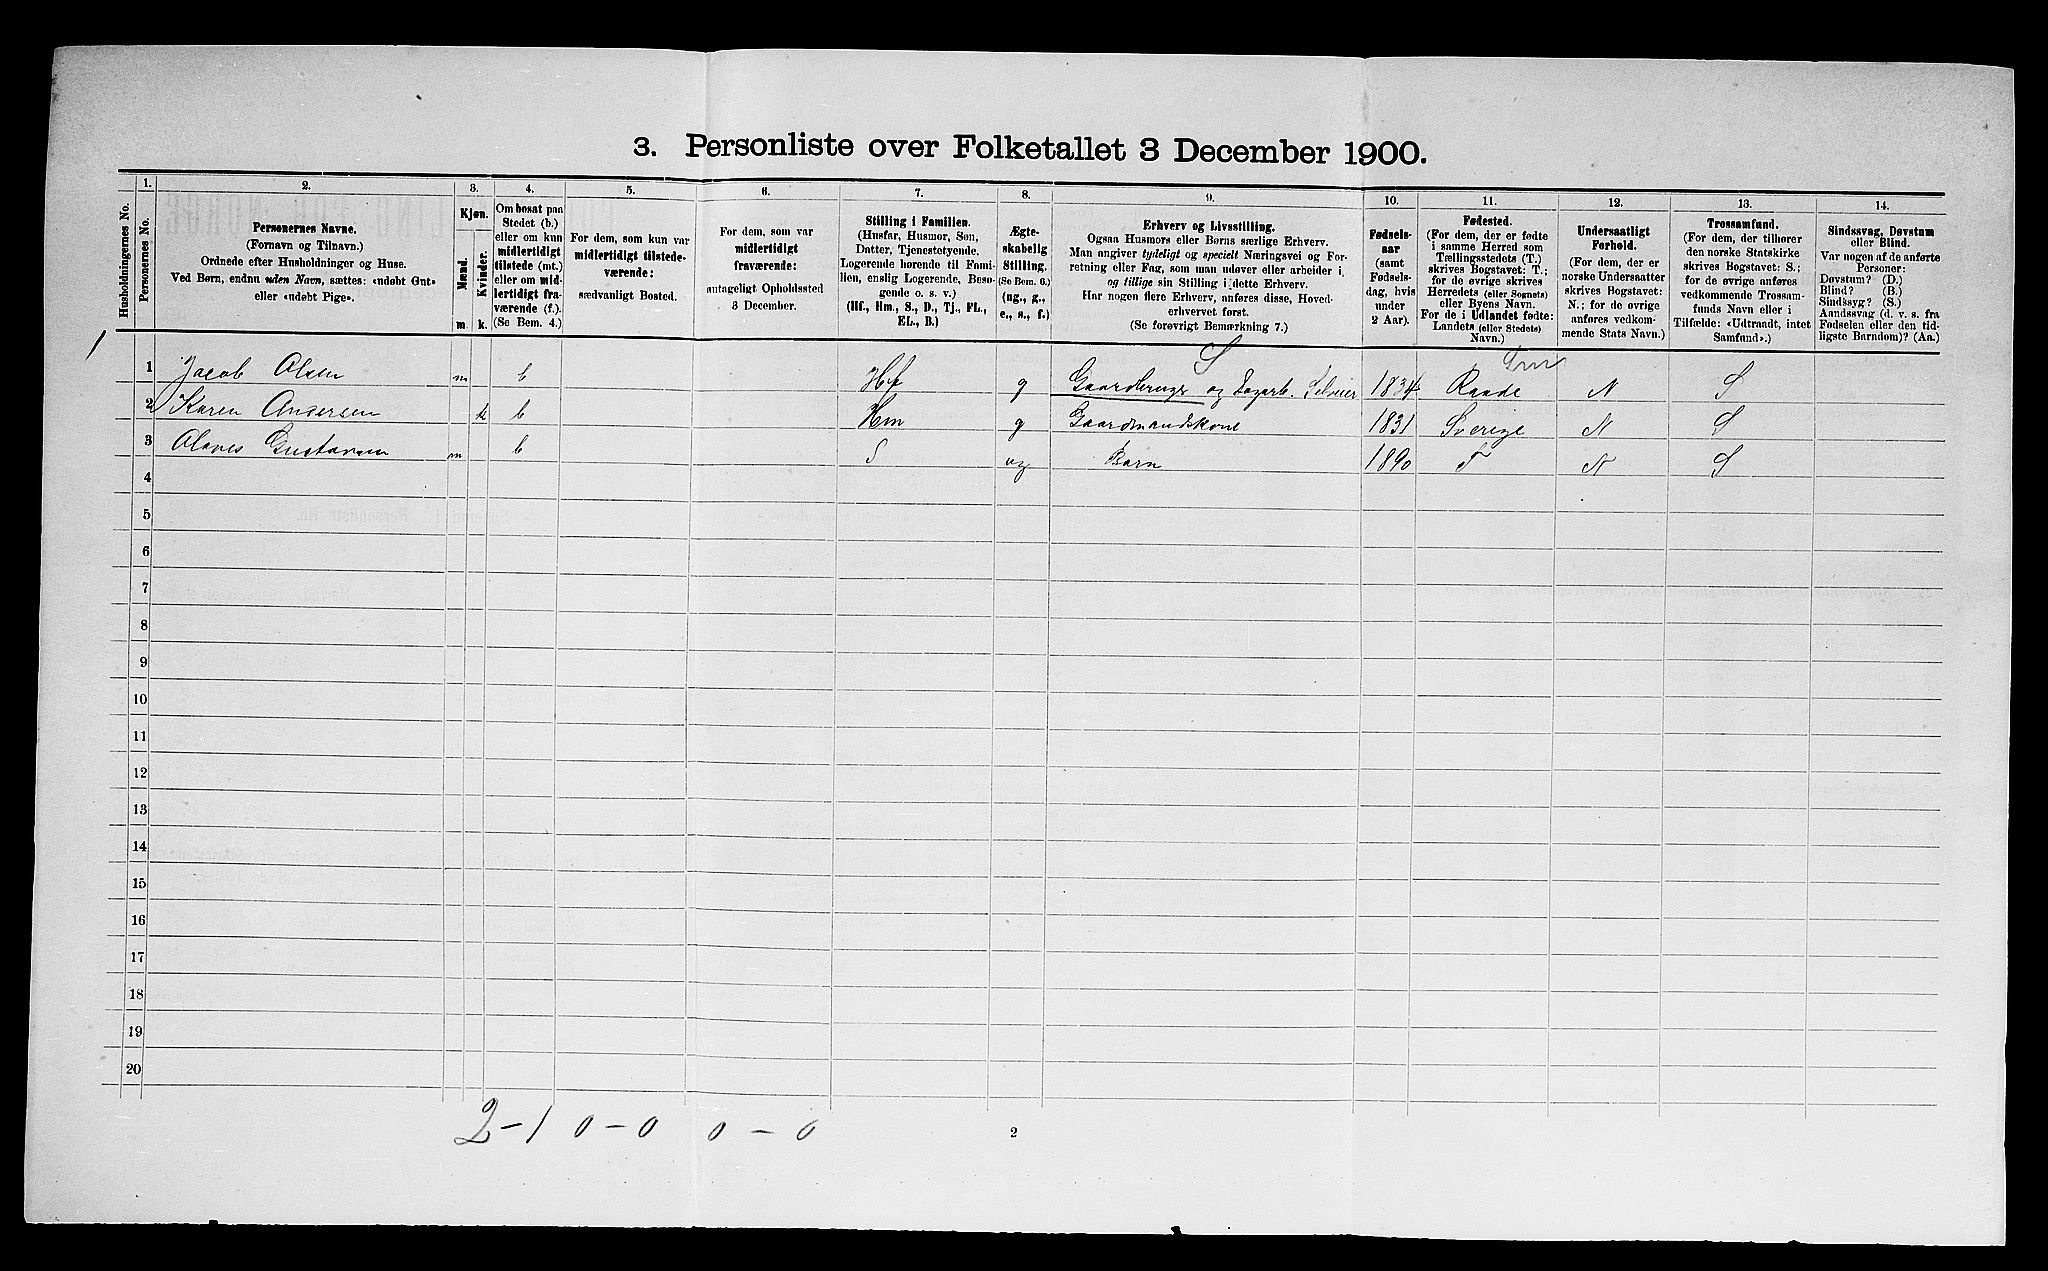 3. Personliste over Folketallet 3 December 1900.
Husholdningernes No.
1. Personernes No.
2. Personernes Navne.
(Fornavn og Tilnavn.)
Ordnede efter Husholdninger og Huse.
Ved Børn, endnu uden Navn, sættes: «udøbt Gut»
eller «udøbt Pige».
3. Kjøn.
Mænd. Kvinder.
m. k.
4. Om bosat paa
Stedet (b.)
eller om kun
midlertidigt
tilstede (mt.)
eller om mid-
lertidigt fra-
værende (f.).
(Se Bem. 4.)
5. For dem, som kun var
midlertidigt tilstede-
værende:
sædvanligt Bosted.
6. For dem, som var
midlertidigt
fraværende:
antageligt Opholdssted
3 December.
7. Stilling i Familien.
(Husfar, Husmor, Søn,
Datter, Tjenestetyende,
Logerende hørende til Fami-
lien, enslig Logerende, Besø-
gende o. s. v.)
(Hf., Hm., S., D., Tj., FL.,
EL., B.)
8. Ægte-
skabelig
Stilling.
(Se Bem. 6.)
(ug., g.,
e., s., f.)
9. Erhverv og Livsstilling.
Ogsaa Husmors eller Børns særlige Erhverv.
Man angiver tydeligt og specielt Næringsvei og For-
retning eller Fag, som man udøver eller arbeider i,
og tillige sin Stilling i dette Erhverv.
Har nogen flere Erhverv, anføres disse, Hoved-
erhvervet først.
(Se forøvrigt Bemærkning 7.)
10. Fødsels-
aar
(samt
Fødsels-
dag, hvis
under
2 Aar).
11. Fødested.
(For dem, der er fødte
i samme Herred som
Tællingsstedets (T.)
skrives Bogstavet: T.;
for de øvrige skrives
Herredets (eller Sognets)
eller Byens Navn.
For de i Udlandet fødte:
Landets (eller Stedets)
Navn.)
12. Undersaatligt
Forhold.
(For dem, der er
norske Undersaatter
skrives Bogstavet:
N.; for de øvrige
anføres vedkom-
mende Stats Navn.)
13. Trossamfund.
(For dem, der tilhører
den norske Statskirke
skrives Bogstavet: S.;
for de øvrige anføres
vedkommende Trossam-
funds Navn eller i
Tilfælde: «Udtraadt, intet
Samfund».)
14. Sindssvag, Døvstum
eller Blind.
Var nogen af de anførte
Personer:
Døvstum? (D.)
Blind? (B.)
Sindssyg? (S.)
Aandssvag (d. v. s. fra
Fødselen eller den tid-
ligste Barndom)? (Aa.)
S
1 1 Jacob Olsen m b Hf g Gaardbruger og Dagarb. Selveier 1834 Raade N S
2 Karen Andersen k b Hm g Gaardmandskone 1831 Sverige N S
3 Olaves Gustavsen m b S ug Barn 1890 T N S
4
5
6
7
8
9
10
11
12
13
14
15
16
17
18
19
20
2-1 0-0 0-0
2